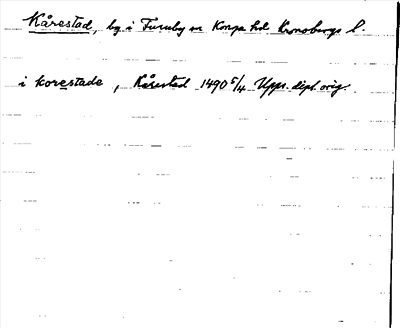 Kårestad, by i Furuby sn Konga hd Kronobergs l.
i korestade, Kårestad 1490 5/4 Upps. dipl. orig.